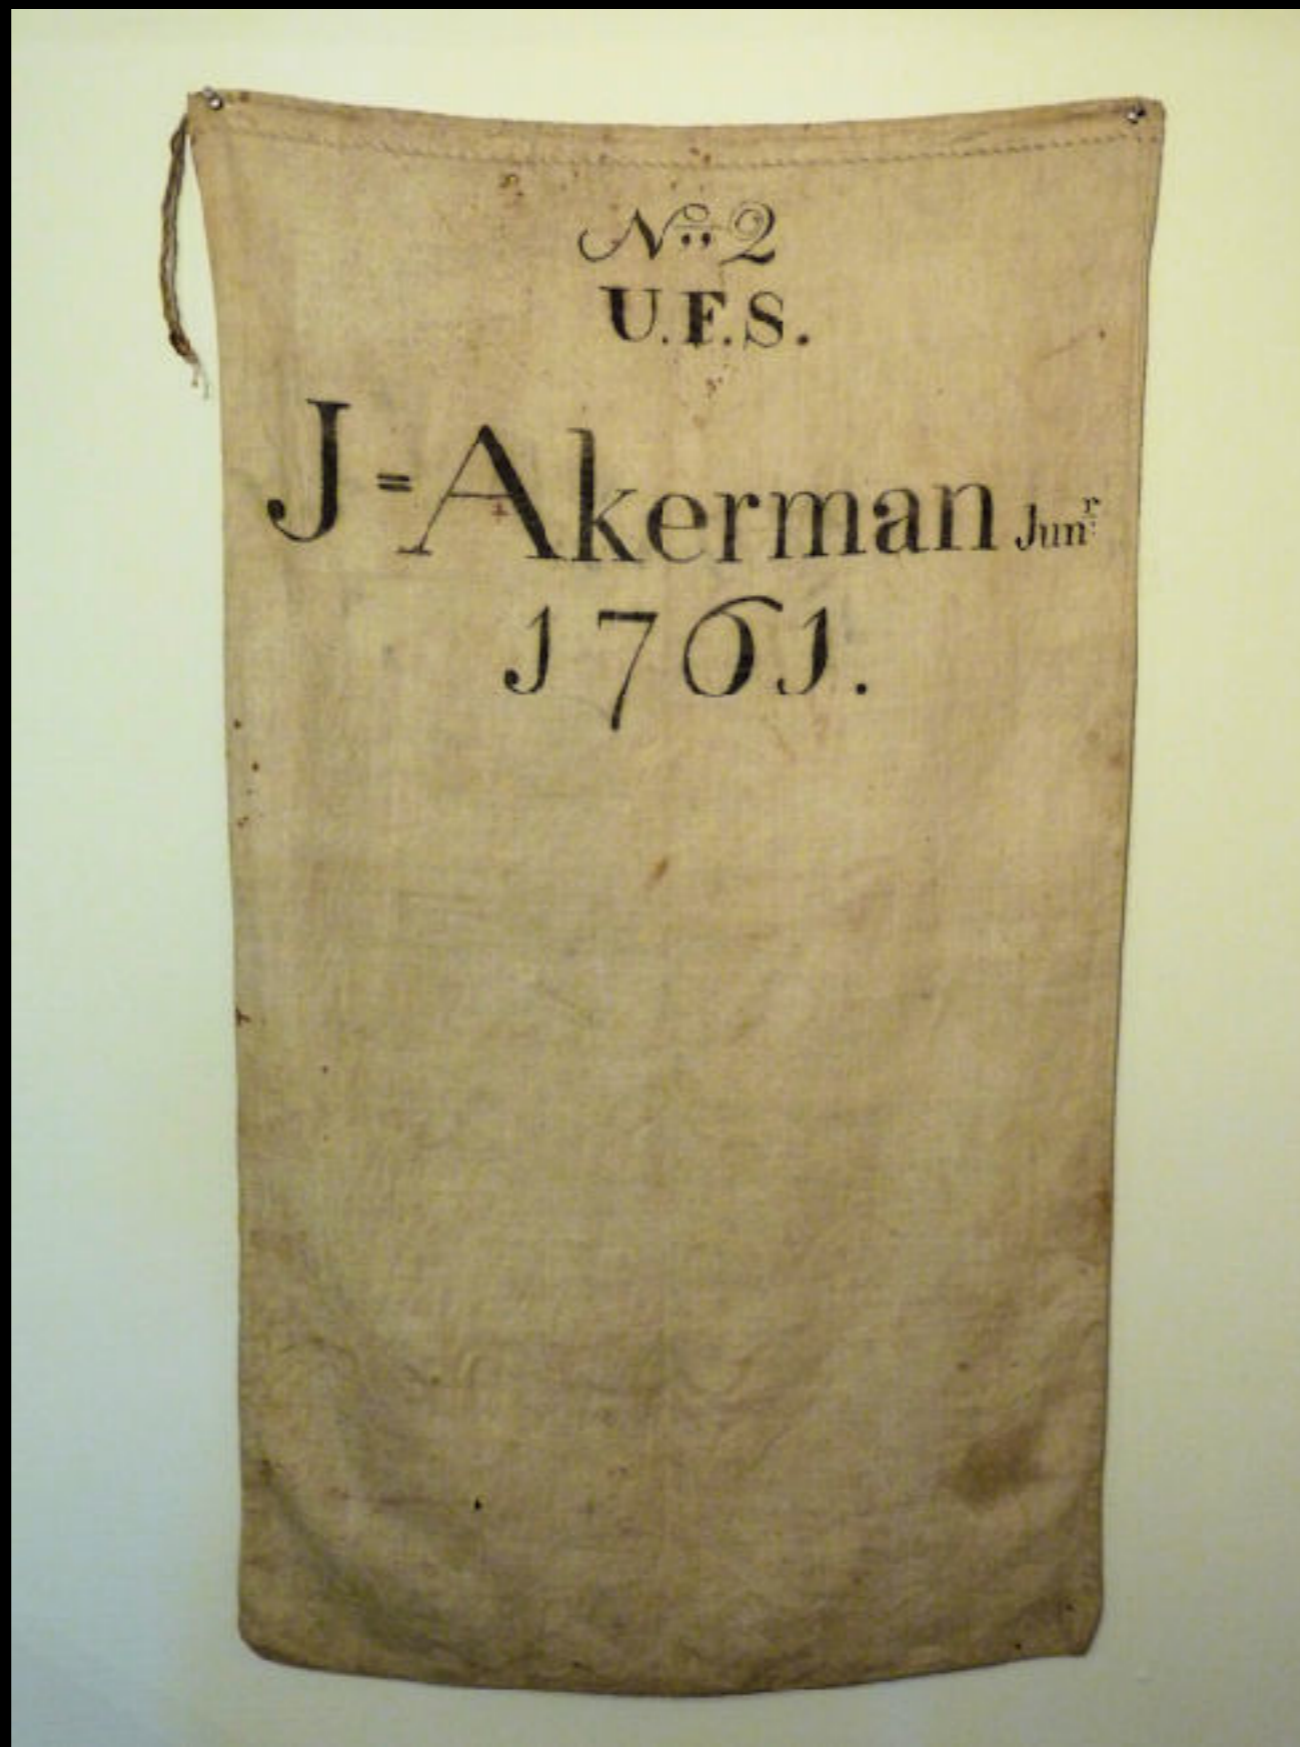 No 2
U.F.S.
J=Akerman Junr
1761.